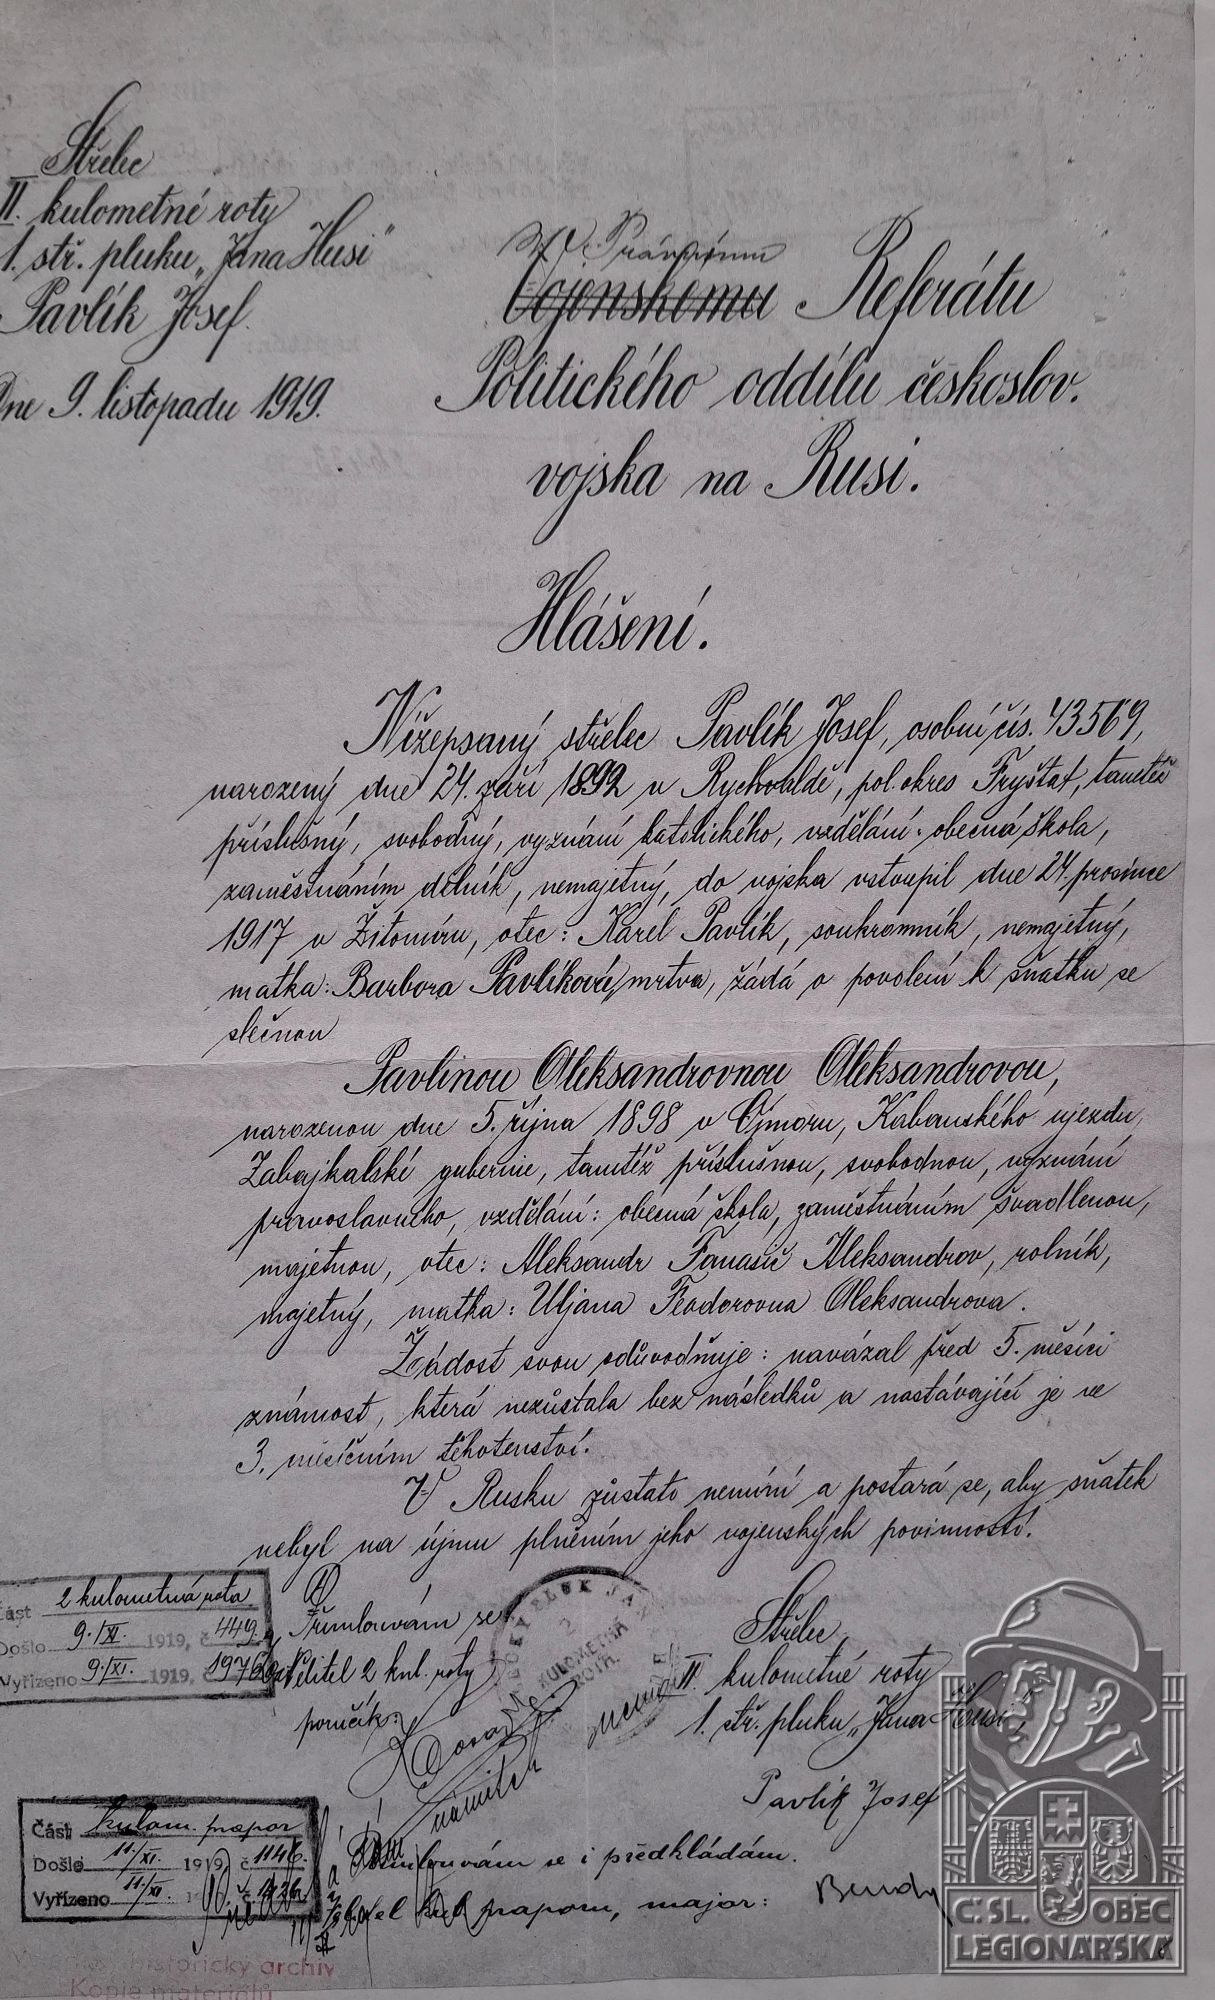 Střelec
II. kulometné roty
1. stř. pluku „Jana Husi"
Pavlík Josef.
Dne 9. listopadu 1919.
Právnímu
Vojenskému Referátu
Politického oddílu českoslov.
vojska na Rusi.
Hlášení.
Nížepsaný střelec Pavlík Josef, osobní čís. 43569,
narozený dne 24. září 1892 v Rychvaldě, pol. okres Fryštat, tamtéž
příslušný, svobodný, vyznání katolického, vzdělání: obecná škola,
zaměstnáním dělník, nemajetný, do vojska vstoupil dne 24. prosince
1917 v Žitomíru, otec: Karel Pavlík, soukromník, nemajetný,
matka: Barbora Pavlíková, mrtva, žádá o povolení k sňatku se
slečnou
Pavlinou Aleksandrovnou Aleksandrovou,
narozenou dne 5. října 1898 v Ojmoru, Kabanského ujezdu,
Zabajkalské gubernie, tamtéž příslušnou, svobodnou, vyznání
pravoslavného, vzdělání: obecná škola, zaměstnáním švadlenou,
majetnou, otec: Aleksandr Fanasič Aleksandrov, rolník,
majetný, matka: Uljana Feodorovna Aleksandrova.
Žádost svou odůvodňuje: navázal před 5. měsíci
známost, která nezůstala bez následků a nastávající je ve
3. měsíčním těhotenství.
V Rusku zůstati nemíní a postará se, aby sňatek
nebyl na újmu plněním jeho vojenských povinností.
Část 2 kulometná rota
Došlo 9./XI. 1919, č. 449
Vyřízeno 9./XI. 1919, č. 1976
Přimlouvám se
Velitel 2 kul. roty
poručík:
KULOMETNÁ
ROTA
Střelec
II. kulometné roty
1. stř. pluku „Jana Husi"
Pavlík Josef
Část kulom. prapor
Došlo 11./XI. 1919 č. 1146
Vyřízeno 11./XI.
Přimlouvám se i předkládám.
praporu, major:
historický archiv
Kopie materiálů
Č. SL. OBEC
LEGIONÁŘSKÁ